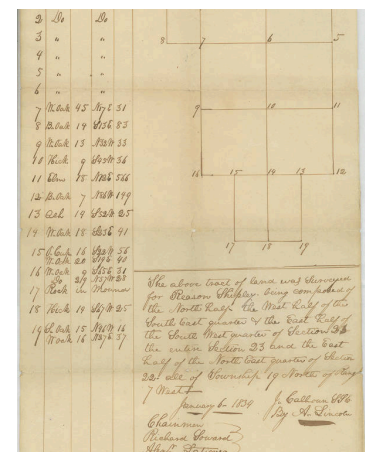 2 Do Do
3 " "
4 " "
5 " "
6 " "
7 W. Oak 45 N17E 31
8 B. Oak 14 S13E 83
9 W. Oak 13 N33W 33
10 Hick 9 S43W 36
11 Elm 18 N26E 566
12 B. Oak 7 N86W 149
13 Ash 14 S32W 25
14 W. Oak 18 S23E 41
15 16 56
W. Oak 20 S19E 40
16 W. Oak 9 S55E 31
Do 24 N37W 28
17 Rock in Mound
18 Hick 14 S67W 25
19 Oak 15 N46W 16
W. oak 16 N37E 37
8 7 6 5
9 10 11
16 15 14 13 12
17 18 19
The above tract of land was Surveyed
for Reason Shipley being composed of
the North half the West half of the
South East quarter & the East half of
the South West quarter of Section 23
the entire Section 23 and the East
half of the North East quarter of Section
22 all of Township 19 North of Range
7 West
January 6 1834
J. Calhoun SSC
By A. Lincoln
Chainmen
Richard